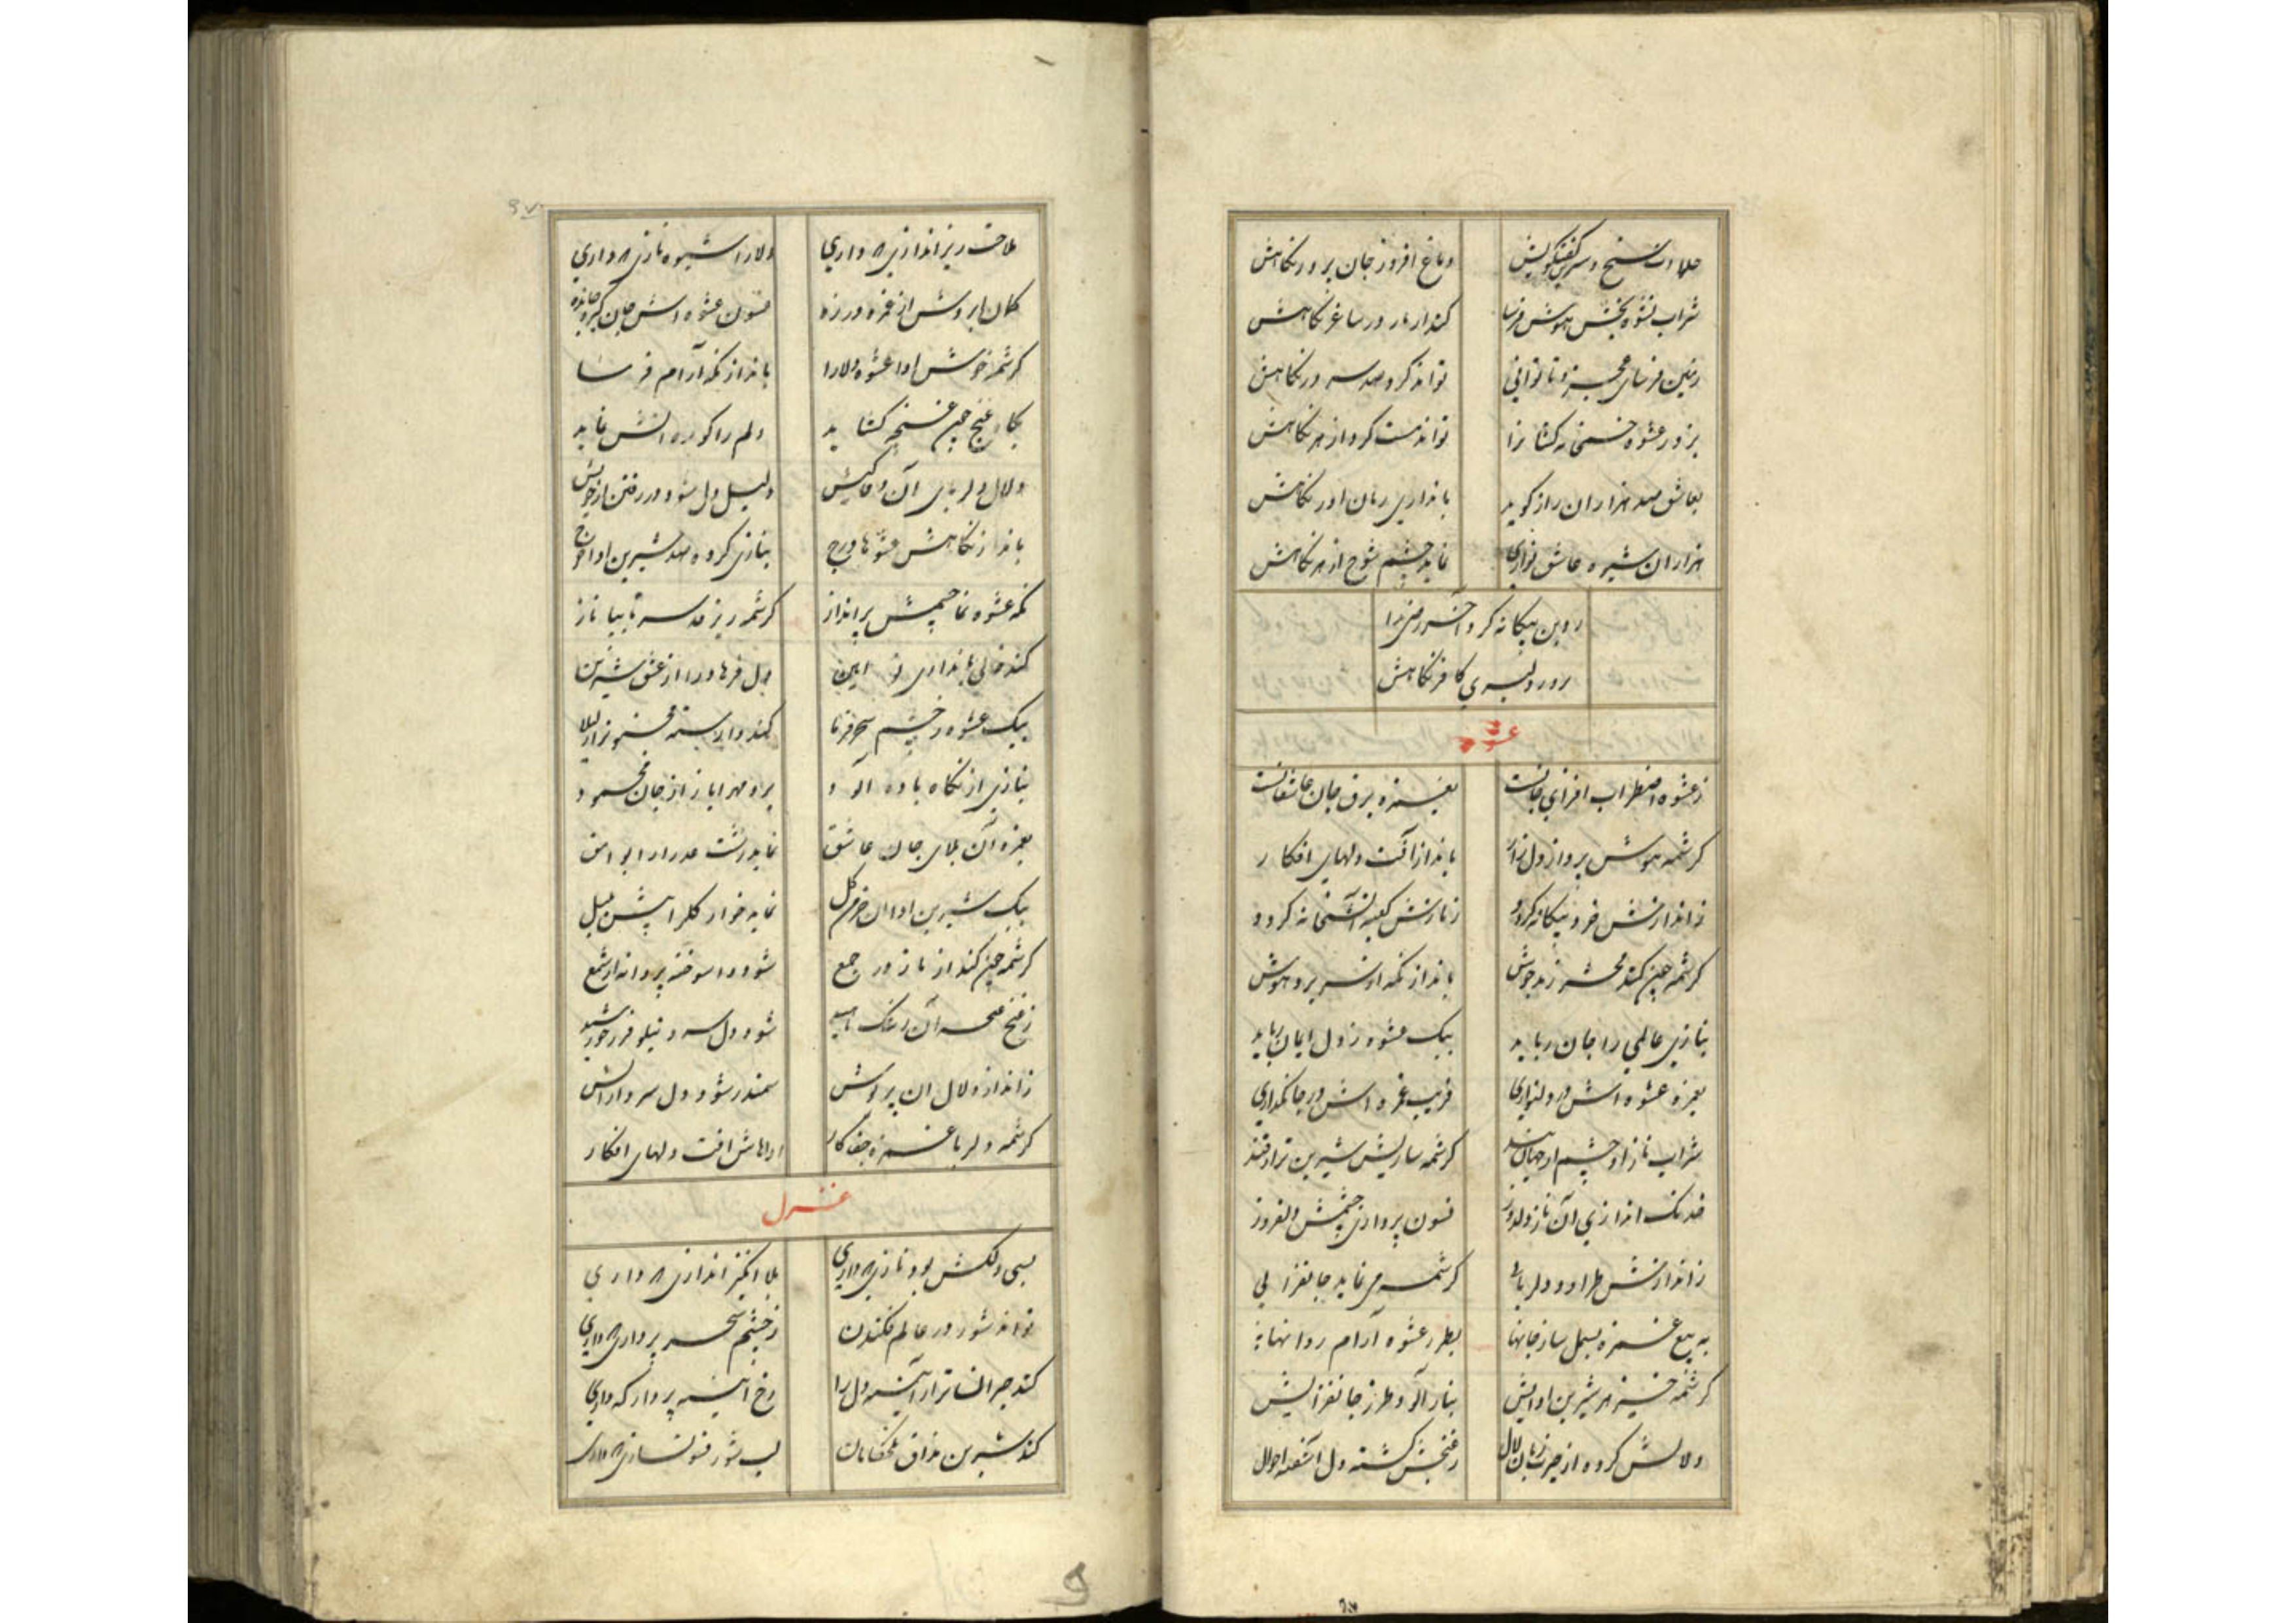 حلاوت سنج و سرین گفتگویش دماغ افروز جان پرور نگاهش
شراب نشوه بخش هوش فرسا کند از ناز در ساغر نگاهش
زمین فرسای عجز و ناتوانی تواند کرد صد سر در نگاهش
بزور عشوه خمخانه کشانرا تواند مست کرد از هر نگاهش
بعاشق صد هزاران راز گوید باندازی زبان آور نگاهش
هزاران شیوه عاشق نوازی نماید چشم شوخ از هر نگاهش
ز دین بیگانه کرد آخر رضی را
دلبری کافر نگاهش
عشوه
ز عشوه اضطراب افزای جانست بغمزه برق جان عاشقانست
کرشمه هوش پرداز دل زار بانداز آفت دلهای افکار
ز اندازش خرد بیگانه گردد ز نازش کعبه آتشخانه گردد
کرشمه چین کند محشر زند جوش بانداز نگه از سر برد هوش
بنازی عالمی را جان رباید بیک عشوه ز دل ایمان رباید
بغمزه عشوه اش در دلنوازی فریب غمزه اش در جانگدازی
شراب ناز از چشم کرشمه شیرین تر از قند
خدنگ اندازی آن ناز دلدوز فسون پردازی چشمش دلفروز
ز اندازش طراود دلربائی کرشمه می نماید جانفزائی
به تیغ غمزه بسمل ساز جانها بطرز عشوه آرام روانها
کرشمه خیز هر شیرین ادایش بناز آلود طرز جانفزایش
دلالش کرده از حیرت زبان لال ز غنجش گشته دل آشفته احوال
ملاحت ریز اندازی که داری دلارا شیوه نازی که داری
کمان ابروش از غمزه در زه فسون عشوه اش جان گیر و جان ده
کرشمه خوش ادا عشوه دلارا بانداز نگه آرام فرسا
بگاه غنج چین غنچه گشاید دلم را نماید
دلال دلربای آن وفا کیش دلیل دل شود در رفتن از خویش
بانداز نگاهش عشوها درج بنازی کرده صد شیرین ادا خرج
نگه عشوه نما چشمش پر انداز کرشمه ریز قد سر تا بپا ناز
کند خالی باندازی نو آیین دل فرهاد را از عشق شیرین
بیک عشوه ز چشم سحر فرما کند وارسته مجنون را ز لیلا
بنازی از نگاه باده آلود برد مهر ایاز از جان محمود
بغمزه آن بلای جان عاشق نماید زشت عذرا را بوامق
بیک شیرین ادا آن خرمن گل نماید خوار گل را پیش بلبل
کرشمه چین کند از ناز در جمع شود واسوخته پروانه از شمع
ز غنج آن رشک ناهید شود دل سرد نیلوفر ز خورشید
ز انداز دلال آن پریوش سمندر شود دل سرد از آتش
کرشمه دلربا غمزه جفا کار اداهاش آفت دلهای افکار
غزل
بسی دلکش بود نازی که داری بلا انگیز اندازی که داری
تواند شور در عالم فکندن ز چشم سحر پردازی که داری
کند حیرانتر از آیینه دل را رخ آیینه پرداز که داری
کند شیرین مذاق تلخکامان لب شور فسونسازی که داری